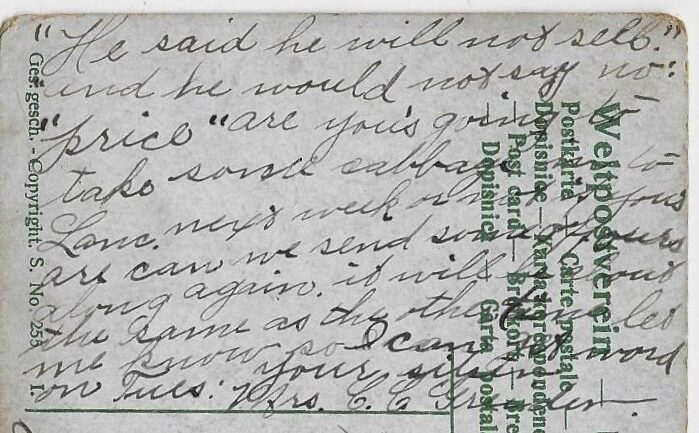 "He said he will not sell."
"and he would not say no:
"price" are you's going to
take some cabbage to
Lanc. next week or not if yous
are can we send some of ours
along again. it will be about
the same as the other time let
me know so I can get word
on Tues: your
Mrs. C. C.
Weltpostverein
Postkarta — Carte postale
Dopisnice — Karta korespondencyjna
Post card — Brefkort
Dopisnica — Carta postal
Ges. gesch. - Copyright. S. No. 255